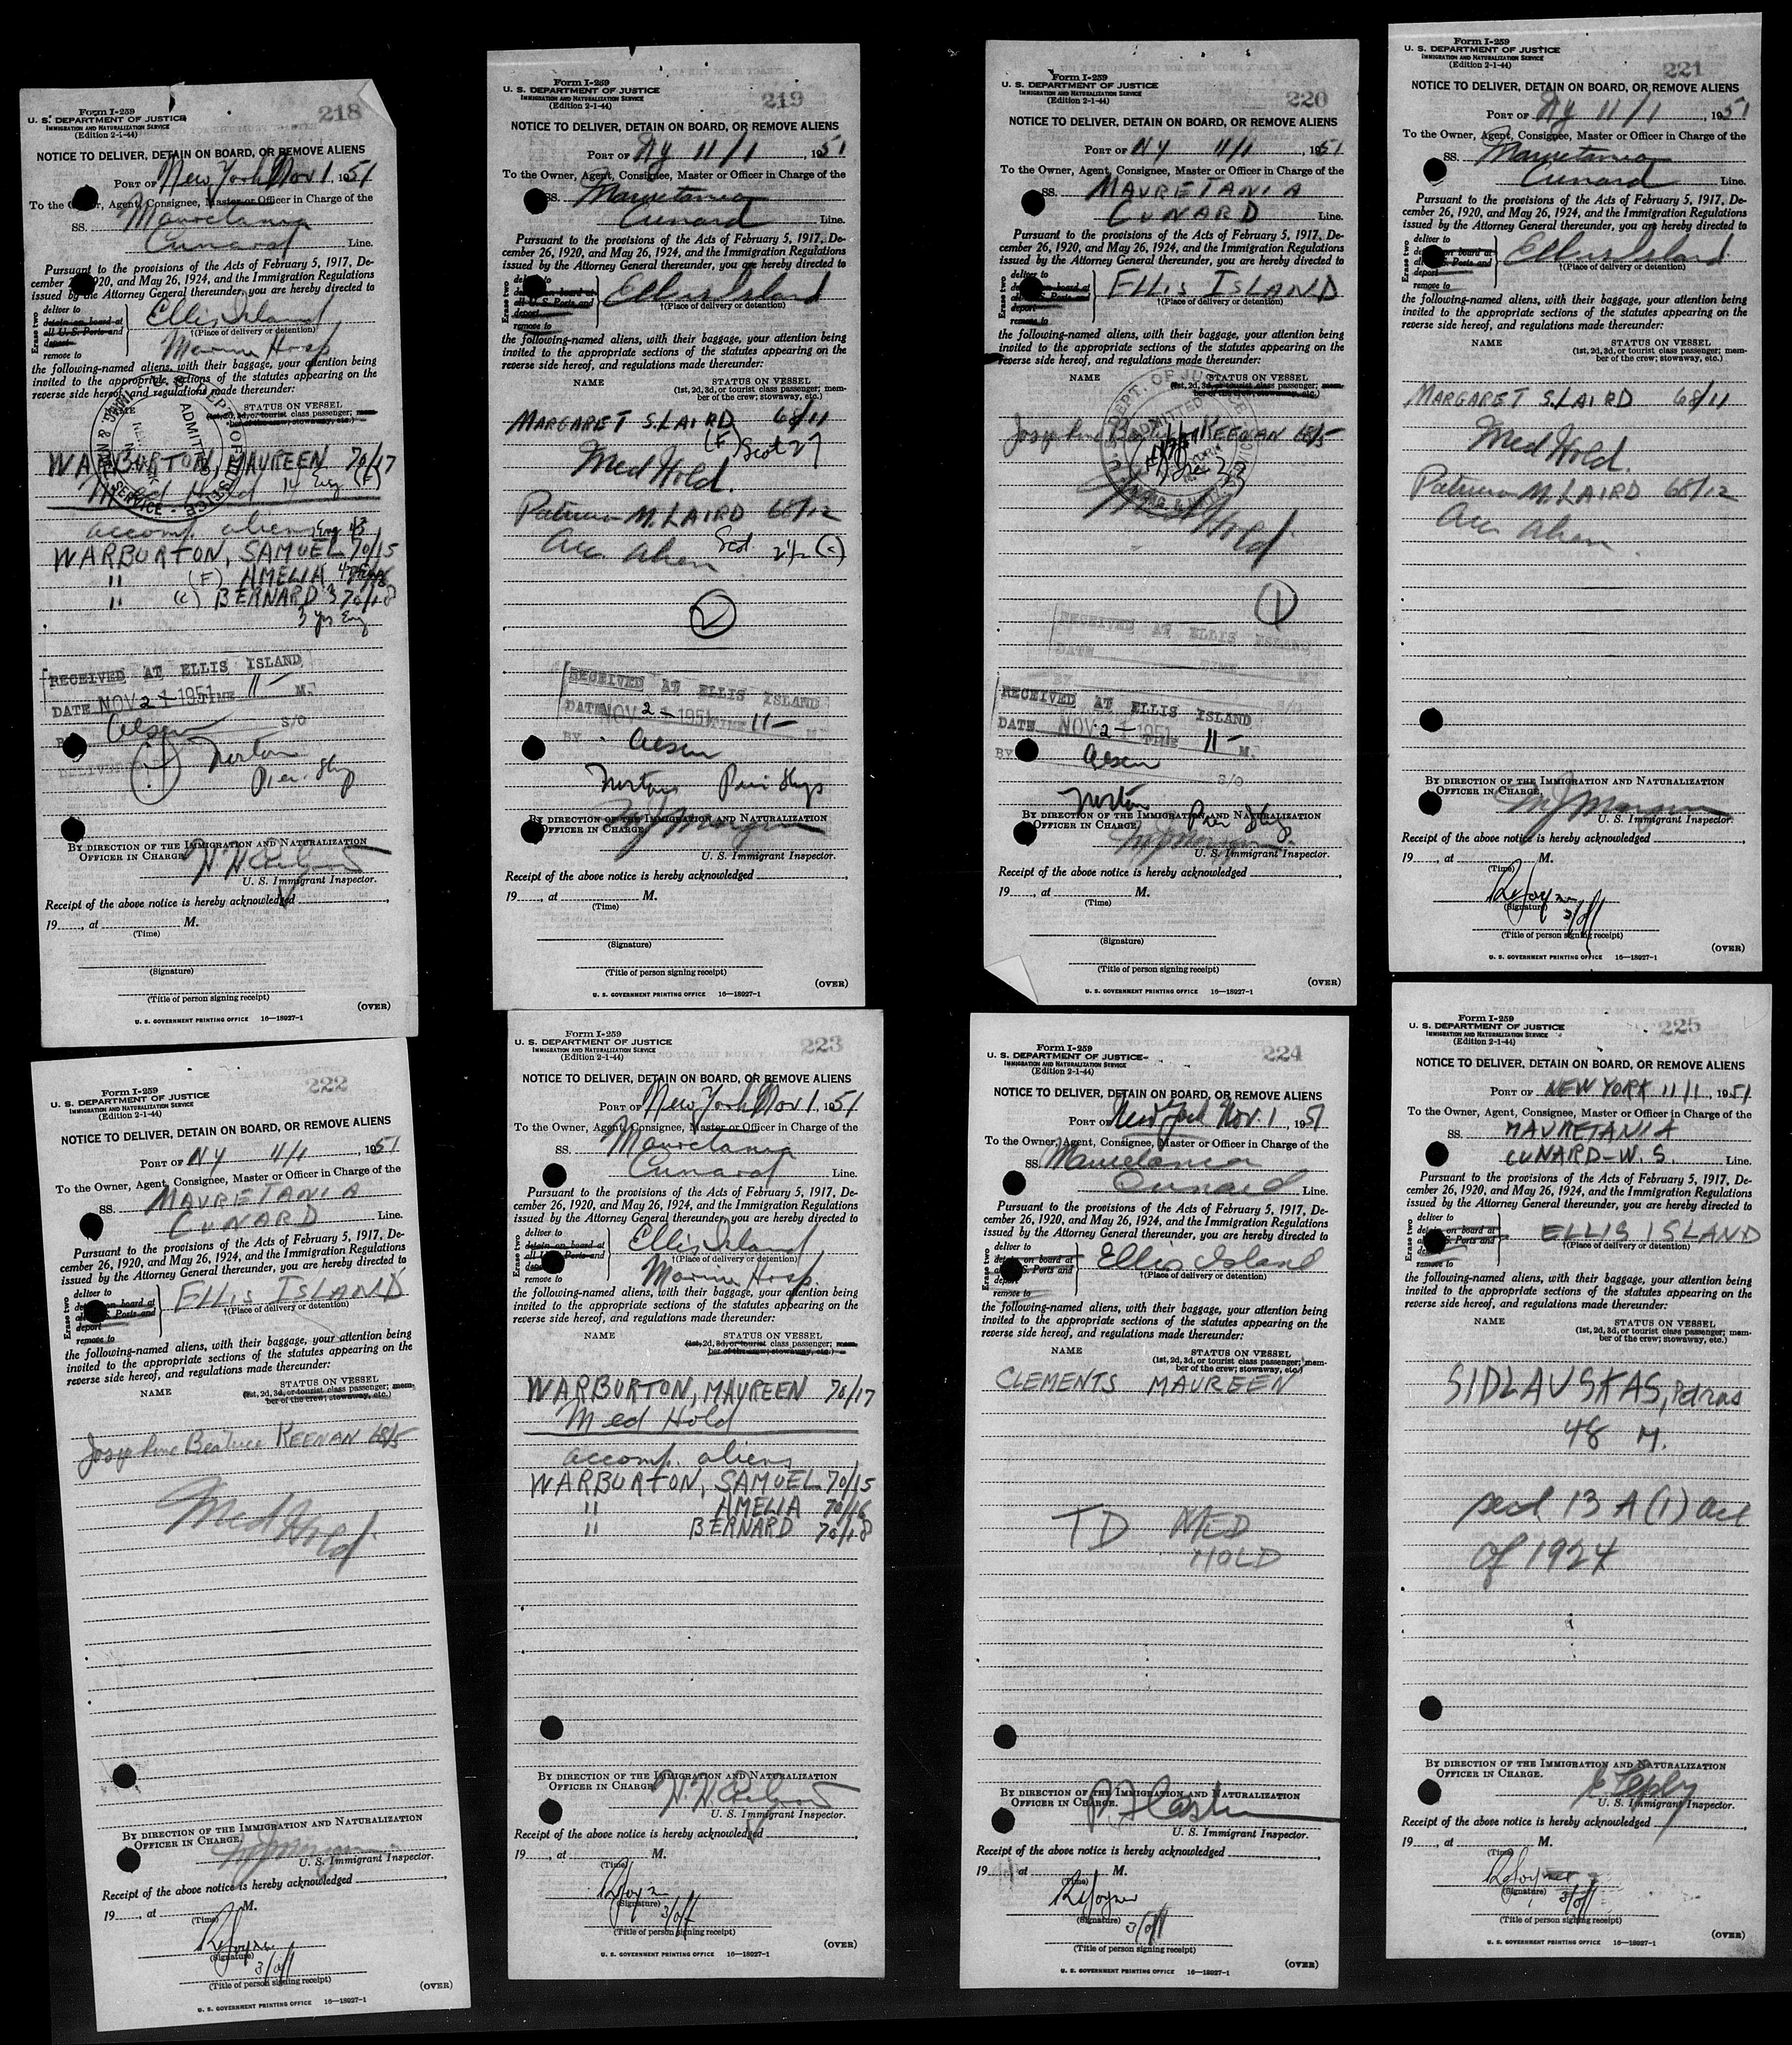 218
Form I-259
U. S. DEPARTMENT OF JUSTICE
IMMIGRATION AND NATURALIZATION SERVICE
(Edition 2-1-44)
NOTICE TO DELIVER, DETAIN ON BOARD, OR REMOVE ALIENS
PORT OF New York Nov 1, 1951
To the Owner, Agent, Consignee, Master or Officer in Charge of the
SS. Mauretania
Cunard Line.
Pursuant to the provisions of the Acts of February 5, 1917, De-
cember 26, 1920, and May 26, 1924, and the Immigration Regulations
issued by the Attorney General thereunder, you are hereby directed to
Erase two
deliver to
detain on board at
all U. S. Ports and
deport
remove to
Ellis Island
†(Place of delivery or detention)
Marine Hosp
the following-named aliens, with their baggage, your attention being
invited to the appropriate sections of the statutes appearing on the
reverse side hereof, and regulations made thereunder:
NAME STATUS ON VESSEL
(1st, 2d, 3d, or tourist class passenger; mem-
ber of the crew; stowaway, etc.)
ADMITTED
WARBURTON, MAUREEN 70/17
Med Hold 14 Eng (F)
accomp. aliens Eng 43
WARBURTON, SAMUEL 70/15
" (F) AMELIA
" (c) BERNARD 3 70/18
3 yrs Eng
RECEIVED AT ELLIS ISLAND
DATE NOV 2 - 1951 TIME 11- M.
BY Olsen S/O
DELIVERED
Norton
By DIRECTION OF THE IMMIGRATION AND NATURALIZATION
OFFICER IN CHARGE.
U. S. Immigrant Inspector.
Receipt of the above notice is hereby acknowledged
19 , at M.
(Time)
(Signature)
(Title of person signing receipt)
(OVER)
U. S. GOVERNMENT PRINTING OFFICE 16—18927-1
219
Form I-259
U. S. DEPARTMENT OF JUSTICE
IMMIGRATION AND NATURALIZATION SERVICE
(Edition 2-1-44)
NOTICE TO DELIVER, DETAIN ON BOARD, OR REMOVE ALIENS
PORT OF NY 11/1, 1951
To the Owner, Agent, Consignee, Master or Officer in Charge of the
SS. Mauretania
Cunard Line.
Pursuant to the provisions of the Acts of February 5, 1917, De-
cember 26, 1920, and May 26, 1924, and the Immigration Regulations
issued by the Attorney General thereunder, you are hereby directed to
deliver to
detain on board at
all U. S. Ports and
deport
remove to
Ellis Island
†(Place of delivery or detention)
the following-named aliens, with their baggage, your attention being
invited to the appropriate sections of the statutes appearing on the
reverse side hereof, and regulations made thereunder:
NAME STATUS ON VESSEL
(1st, 2d, 3d, or tourist class passenger; mem-
ber of the crew; stowaway, etc.)
MARGARET S. LAIRD 68/11
(F) Scot 27
Med Hold.
Patricia M. LAIRD 68/12
Acc. Alien Scot. 2½ (c)
2
RECEIVED AT ELLIS ISLAND
DATE NOV 2 - 1951 TIME 11- M.
BY Olsen
Norton
By DIRECTION OF THE IMMIGRATION AND NATURALIZATION
OFFICER IN CHARGE.
M J Morgan
U. S. Immigrant Inspector.
Receipt of the above notice is hereby acknowledged
19 , at M.
(Time)
(Signature)
(Title of person signing receipt)
(OVER)
U. S. GOVERNMENT PRINTING OFFICE 16—18927-1
220
Form I-259
U. S. DEPARTMENT OF JUSTICE
IMMIGRATION AND NATURALIZATION SERVICE
(Edition 2-1-44)
NOTICE TO DELIVER, DETAIN ON BOARD, OR REMOVE ALIENS
PORT OF NY 11/1, 1951
To the Owner, Agent, Consignee, Master or Officer in Charge of the
SS. MAURETANIA
CUNARD Line.
Pursuant to the provisions of the Acts of February 5, 1917, De-
cember 26, 1920, and May 26, 1924, and the Immigration Regulations
issued by the Attorney General thereunder, you are hereby directed to
Erase two
deliver to
detain on board at
all U. S. Ports and
deport
remove to
ELLIS ISLAND
†(Place of delivery or detention)
the following-named aliens, with their baggage, your attention being
invited to the appropriate sections of the statutes appearing on the
reverse side hereof, and regulations made thereunder:
NAME STATUS ON VESSEL
(1st, 2d, 3d, or tourist class passenger; mem-
ber of the crew; stowaway, etc.)
ADMITTED
Josephine KEENAN 68/5
Med Hold
1
RECEIVED AT ELLIS ISLAND
DATE TIME M.
BY
RECEIVED AT ELLIS ISLAND
DATE NOV 2 - 1951 TIME 11- M.
BY Olsen S/O
Norton
By DIRECTION OF THE IMMIGRATION AND NATURALIZATION
OFFICER IN CHARGE.
M J Morgan
U. S. Immigrant Inspector.
Receipt of the above notice is hereby acknowledged
19 , at M.
(Time)
(Signature)
(Title of person signing receipt)
(OVER)
U. S. GOVERNMENT PRINTING OFFICE 16—18927-1
221
Form I-259
U. S. DEPARTMENT OF JUSTICE
IMMIGRATION AND NATURALIZATION SERVICE
(Edition 2-1-44)
NOTICE TO DELIVER, DETAIN ON BOARD, OR REMOVE ALIENS
PORT OF NY 11/1, 1951
To the Owner, Agent, Consignee, Master or Officer in Charge of the
SS. Mauretania
Cunard Line.
Pursuant to the provisions of the Acts of February 5, 1917, De-
cember 26, 1920, and May 26, 1924, and the Immigration Regulations
issued by the Attorney General thereunder, you are hereby directed to
Erase two
deliver to
detain on board at
all U. S. Ports and
deport
remove to
Ellis Island
†(Place of delivery or detention)
the following-named aliens, with their baggage, your attention being
invited to the appropriate sections of the statutes appearing on the
reverse side hereof, and regulations made thereunder:
NAME STATUS ON VESSEL
(1st, 2d, 3d, or tourist class passenger; mem-
ber of the crew; stowaway, etc.)
MARGARET S. LAIRD 68/11
Med Hold.
Patricia M. LAIRD 68/12
Acc Alien
By DIRECTION OF THE IMMIGRATION AND NATURALIZATION
OFFICER IN CHARGE.
M J Morgan
U. S. Immigrant Inspector.
Receipt of the above notice is hereby acknowledged
19 , at M.
(Time)
R Joyner
(Signature)
3/off
(Title of person signing receipt)
(OVER)
U. S. GOVERNMENT PRINTING OFFICE 16—18927-1
222
Form I-259
U. S. DEPARTMENT OF JUSTICE
IMMIGRATION AND NATURALIZATION SERVICE
(Edition 2-1-44)
NOTICE TO DELIVER, DETAIN ON BOARD, OR REMOVE ALIENS
PORT OF NY 11/1, 1951
To the Owner, Agent, Consignee, Master or Officer in Charge of the
SS. MAURETANIA
CUNARD Line.
Pursuant to the provisions of the Acts of February 5, 1917, De-
cember 26, 1920, and May 26, 1924, and the Immigration Regulations
issued by the Attorney General thereunder, you are hereby directed to
Erase two
deliver to
detain on board at
all U. S. Ports and
deport
remove to
ELLIS ISLAND
†(Place of delivery or detention)
the following-named aliens, with their baggage, your attention being
invited to the appropriate sections of the statutes appearing on the
reverse side hereof, and regulations made thereunder:
NAME STATUS ON VESSEL
(1st, 2d, 3d, or tourist class passenger; mem-
ber of the crew; stowaway, etc.)
Josephine Beatrice KEENAN 68/5
Med Hold
By DIRECTION OF THE IMMIGRATION AND NATURALIZATION
OFFICER IN CHARGE.
M J Morgan
U. S. Immigrant Inspector.
Receipt of the above notice is hereby acknowledged
19 , at M.
(Time)
R Joyner
(Signature)
3/off
(Title of person signing receipt)
(OVER)
U. S. GOVERNMENT PRINTING OFFICE 16—18927-1
223
Form I-259
U. S. DEPARTMENT OF JUSTICE
IMMIGRATION AND NATURALIZATION SERVICE
(Edition 2-1-44)
NOTICE TO DELIVER, DETAIN ON BOARD, OR REMOVE ALIENS
PORT OF New York Nov 1, 1951
To the Owner, Agent, Consignee, Master or Officer in Charge of the
SS. Mauretania
Cunard Line.
Pursuant to the provisions of the Acts of February 5, 1917, De-
cember 26, 1920, and May 26, 1924, and the Immigration Regulations
issued by the Attorney General thereunder, you are hereby directed to
Erase two
deliver to
detain on board at
all U. S. Ports and
deport
remove to
Ellis Island
†(Place of delivery or detention)
Marine Hosp.
the following-named aliens, with their baggage, your attention being
invited to the appropriate sections of the statutes appearing on the
reverse side hereof, and regulations made thereunder:
NAME STATUS ON VESSEL
(1st, 2d, 3d, or tourist class passenger; mem-
ber of the crew; stowaway, etc.)
WARBURTON, MAUREEN 70/17
Med Hold
accomp. aliens
WARBURTON, SAMUEL 70/15
" AMELIA 70/16
" BERNARD 70/18
By DIRECTION OF THE IMMIGRATION AND NATURALIZATION
OFFICER IN CHARGE.
U. S. Immigrant Inspector.
Receipt of the above notice is hereby acknowledged
19 , at M.
(Time)
R Joyner
(Signature)
3/off
(Title of person signing receipt)
(OVER)
U. S. GOVERNMENT PRINTING OFFICE 16—18927-1
224
Form I-259
U. S. DEPARTMENT OF JUSTICE
IMMIGRATION AND NATURALIZATION SERVICE
(Edition 2-1-44)
NOTICE TO DELIVER, DETAIN ON BOARD, OR REMOVE ALIENS
PORT OF New York Nov. 1, 1951
To the Owner, Agent, Consignee, Master or Officer in Charge of the
SS. Mauretania
Cunard Line.
Pursuant to the provisions of the Acts of February 5, 1917, De-
cember 26, 1920, and May 26, 1924, and the Immigration Regulations
issued by the Attorney General thereunder, you are hereby directed to
Erase two
deliver to
detain on board at
all U. S. Ports and
deport
remove to
Ellis Island
†(Place of delivery or detention)
the following-named aliens, with their baggage, your attention being
invited to the appropriate sections of the statutes appearing on the
reverse side hereof, and regulations made thereunder:
NAME STATUS ON VESSEL
(1st, 2d, 3d, or tourist class passenger; mem-
ber of the crew; stowaway, etc.)
CLEMENTS MAUREEN
TD MED
HOLD
By DIRECTION OF THE IMMIGRATION AND NATURALIZATION
OFFICER IN CHARGE.
U. S. Immigrant Inspector.
Receipt of the above notice is hereby acknowledged
19 , at M.
(Time)
R Joyner
(Signature)
3/off
(Title of person signing receipt)
(OVER)
U. S. GOVERNMENT PRINTING OFFICE 16—18927-1
225
Form I-259
U. S. DEPARTMENT OF JUSTICE
IMMIGRATION AND NATURALIZATION SERVICE
(Edition 2-1-44)
NOTICE TO DELIVER, DETAIN ON BOARD, OR REMOVE ALIENS
PORT OF NEW YORK 11/1, 1951
To the Owner, Agent, Consignee, Master or Officer in Charge of the
SS. MAURETANIA
CUNARD-W. S. Line.
Pursuant to the provisions of the Acts of February 5, 1917, De-
cember 26, 1920, and May 26, 1924, and the Immigration Regulations
issued by the Attorney General thereunder, you are hereby directed to
Erase two
deliver to
detain on board at
all U. S. Ports and
deport
remove to
ELLIS ISLAND
†(Place of delivery or detention)
the following-named aliens, with their baggage, your attention being
invited to the appropriate sections of the statutes appearing on the
reverse side hereof, and regulations made thereunder:
NAME STATUS ON VESSEL
(1st, 2d, 3d, or tourist class passenger; mem-
ber of the crew; stowaway, etc.)
SIDLAVSKAS, Petras
48 M.
sect 13 A (1) act
of 1924
By DIRECTION OF THE IMMIGRATION AND NATURALIZATION
OFFICER IN CHARGE.
U. S. Immigrant Inspector.
Receipt of the above notice is hereby acknowledged
19 , at M.
(Time)
R Joyner
(Signature)
3/off
(Title of person signing receipt)
(OVER)
U. S. GOVERNMENT PRINTING OFFICE 16—18927-1